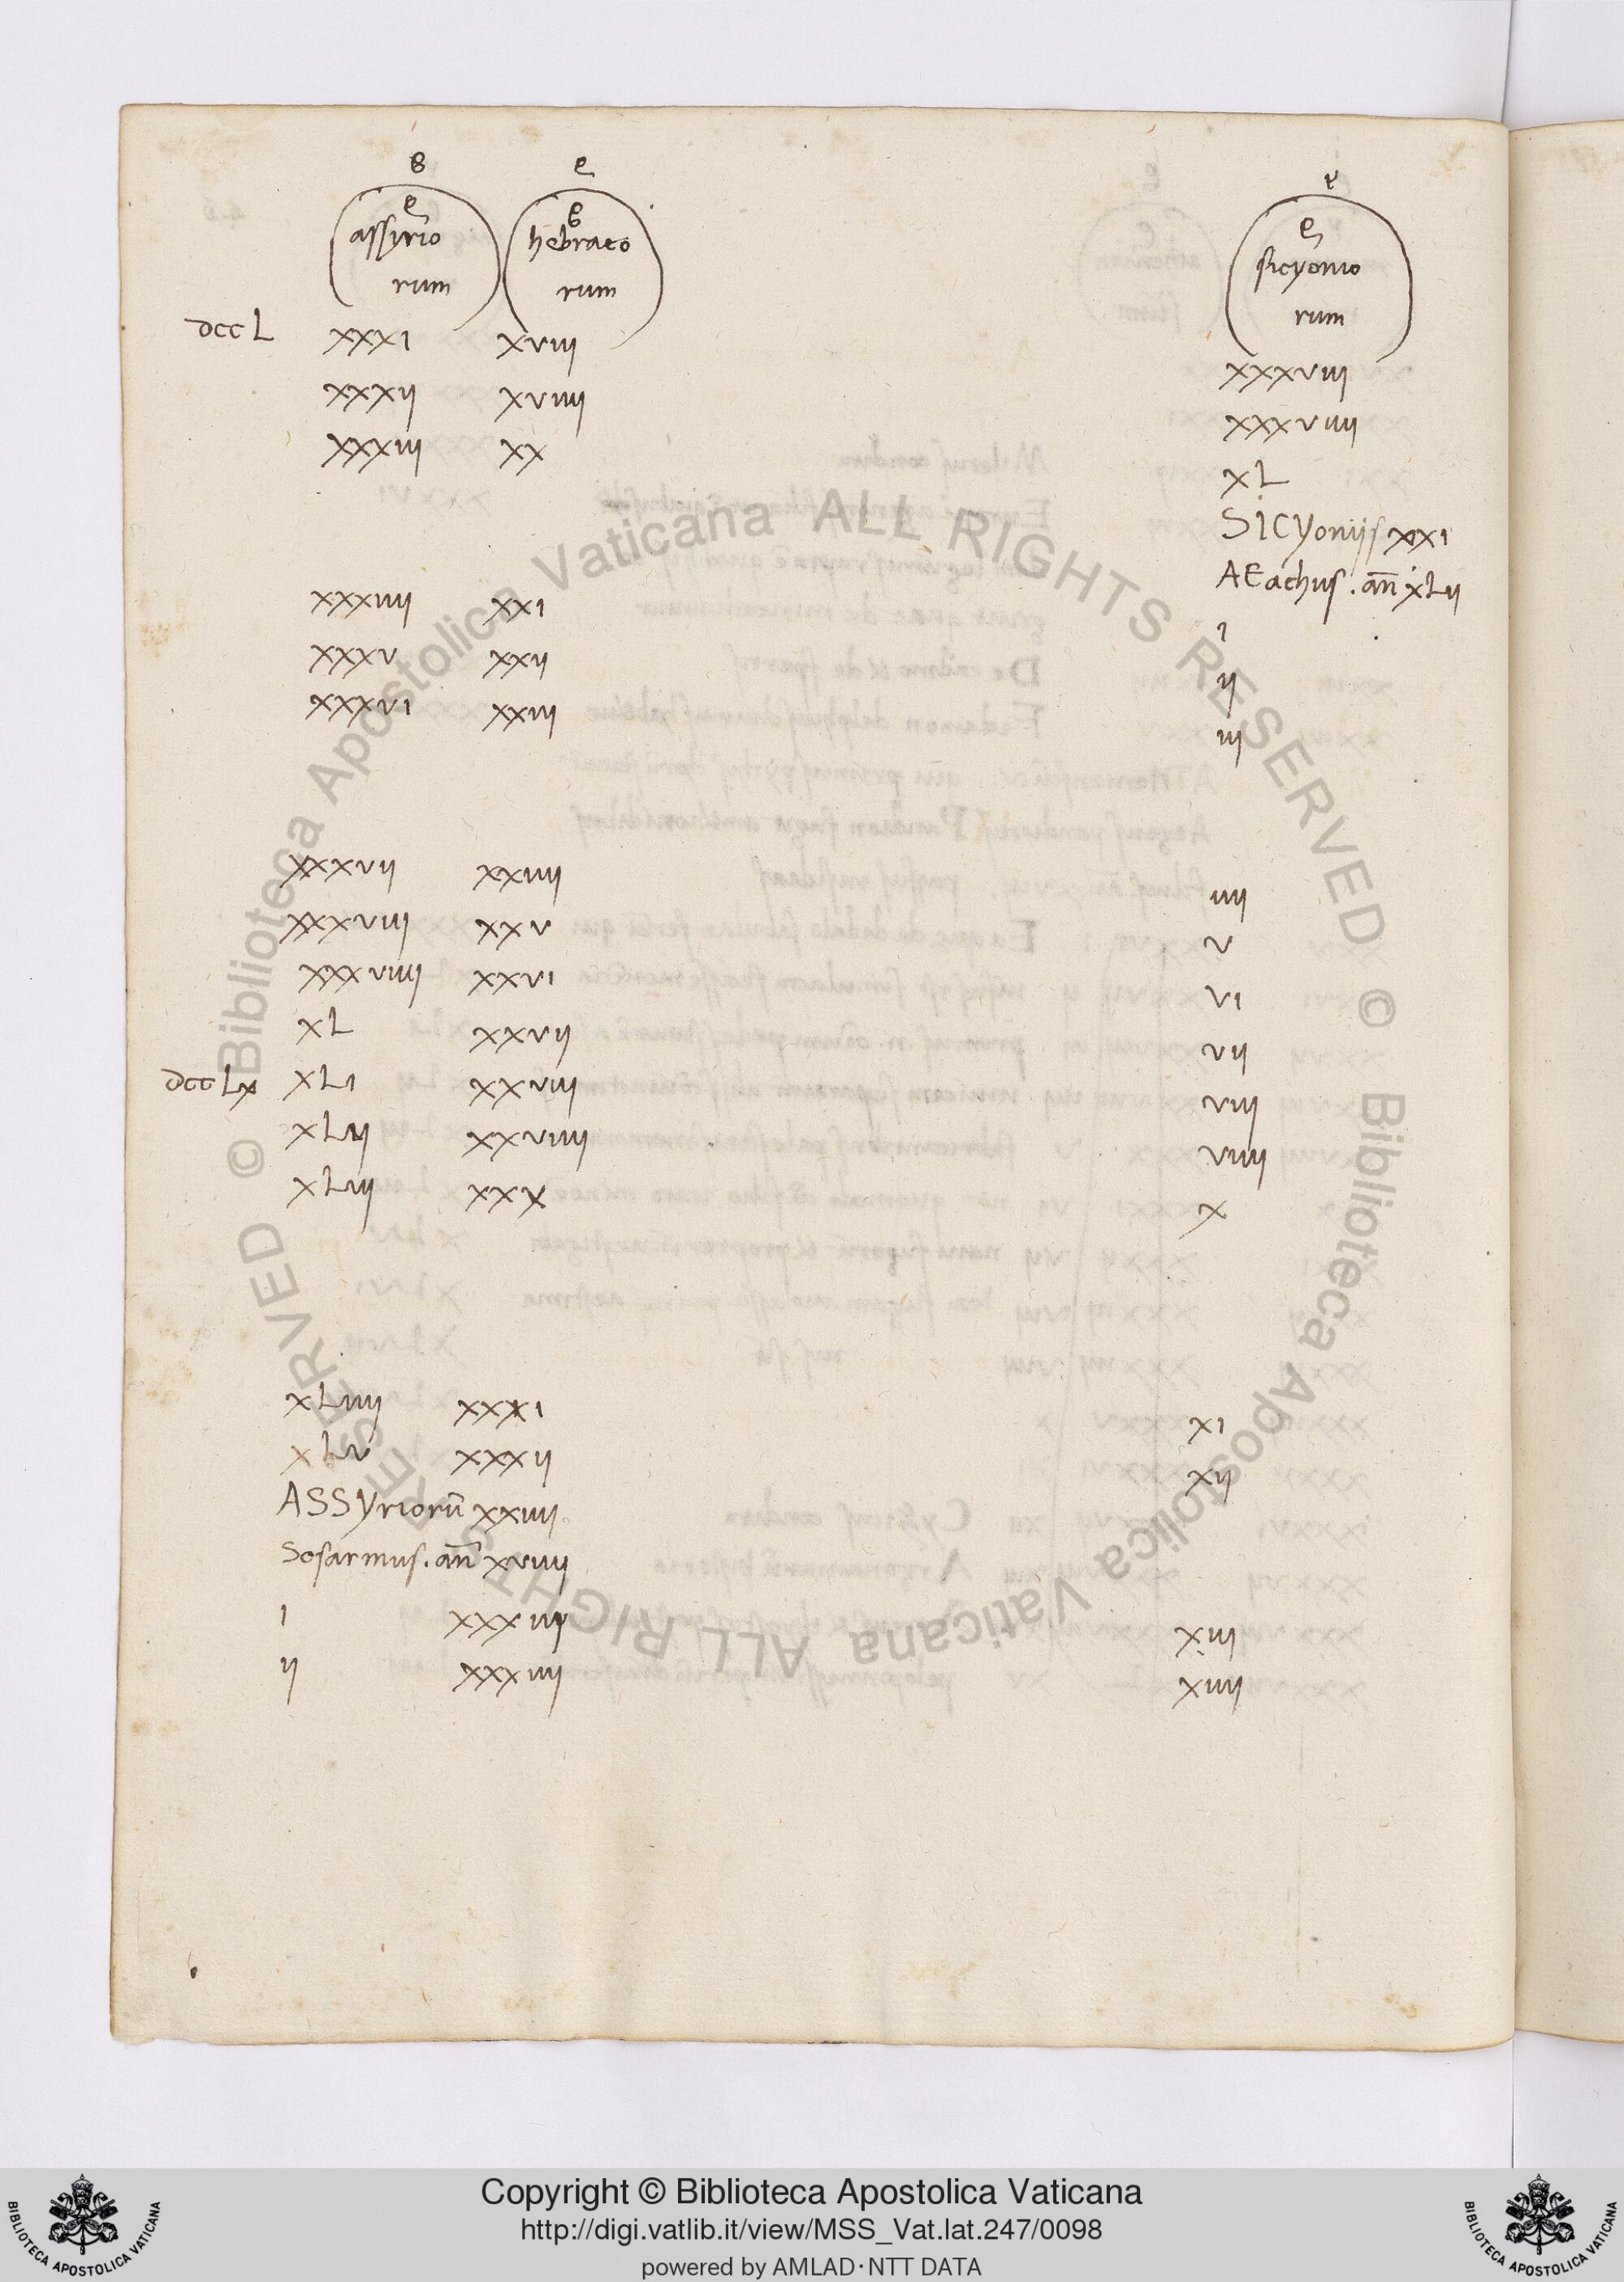 B e r
e B e
assyrio hebraeo sicyonio
rum rum rum
DCCL xxxi xviii xxxviii
xxxii xviiii xxxviiii
xxxiii xx xL
SICYoniis xxi
AEachus . an̄ xLii
xxxiiii xxi i
xxxv xxii ii
xxxvi xxiii iii
xxxvii xxiiii iiii
xxxviii xxv v
xxxviiii xxvi vi
xL xxvii vii
DCCLx xLi xxviii viii
xLii xxviiii viiii
xLiii xxx x
xLiiii xxxi xi
xLv xxxii xii
ASSYriorū xxiiii
Sosarmus . an̄ xviiii
i xxxiii xiii
ii xxxiiii xiiii
© Biblioteca Apostolica Vaticana ALL RIGHTS RESERVED
© Biblioteca Apostolica Vaticana ALL RIGHTS RESERVED
Copyright © Biblioteca Apostolica Vaticana
http://digi.vatlib.it/view/MSS_Vat.lat.247/0098
powered by AMLAD·NTT DATA
BIBLIOTECA APOSTOLICA VATICANA
BIBLIOTECA APOSTOLICA VATICANA